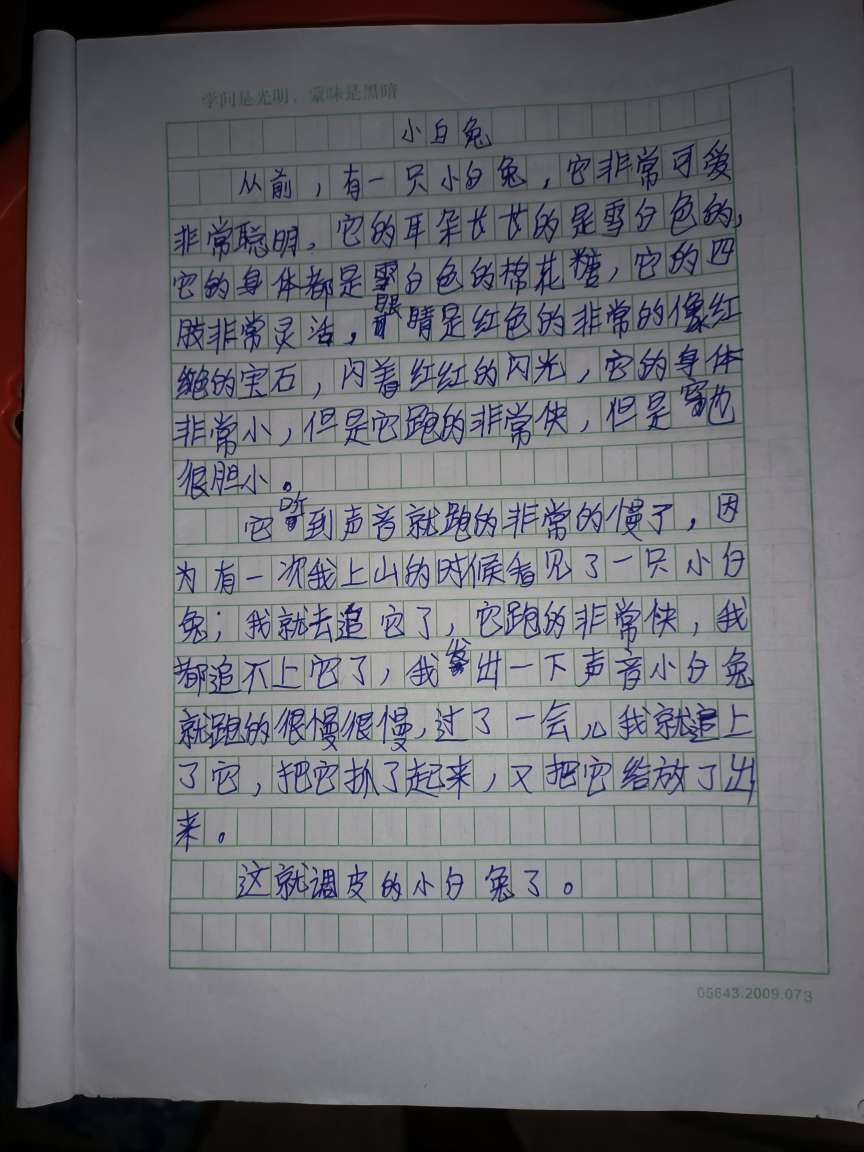 学问是光明，蒙昧是黑暗
小白兔
从前，有一只小白兔，它非常可爱
非常聪明，它的耳朵长长的是雪白色的，
它的身体都是雪白色的棉花糖，它的四
肢非常灵活，眼睛是红色的非常的像红
绝的宝石，闪着红红的闪光，它的身体
非常小，但是它跑的非常快，但是它也
很胆小。
它听到声音就跑的非常的慢了，因
为有一次我上山的时候看见了一只小白
兔；我就去追它了，它跑的非常快，我
都追不上它了，我发出一下声音小白兔
就跑的很慢很慢，过了一会儿我就追上
了它，把它抓了起来，又把它给放了出
来。
这就调皮的小白兔了。
05643.2009.073